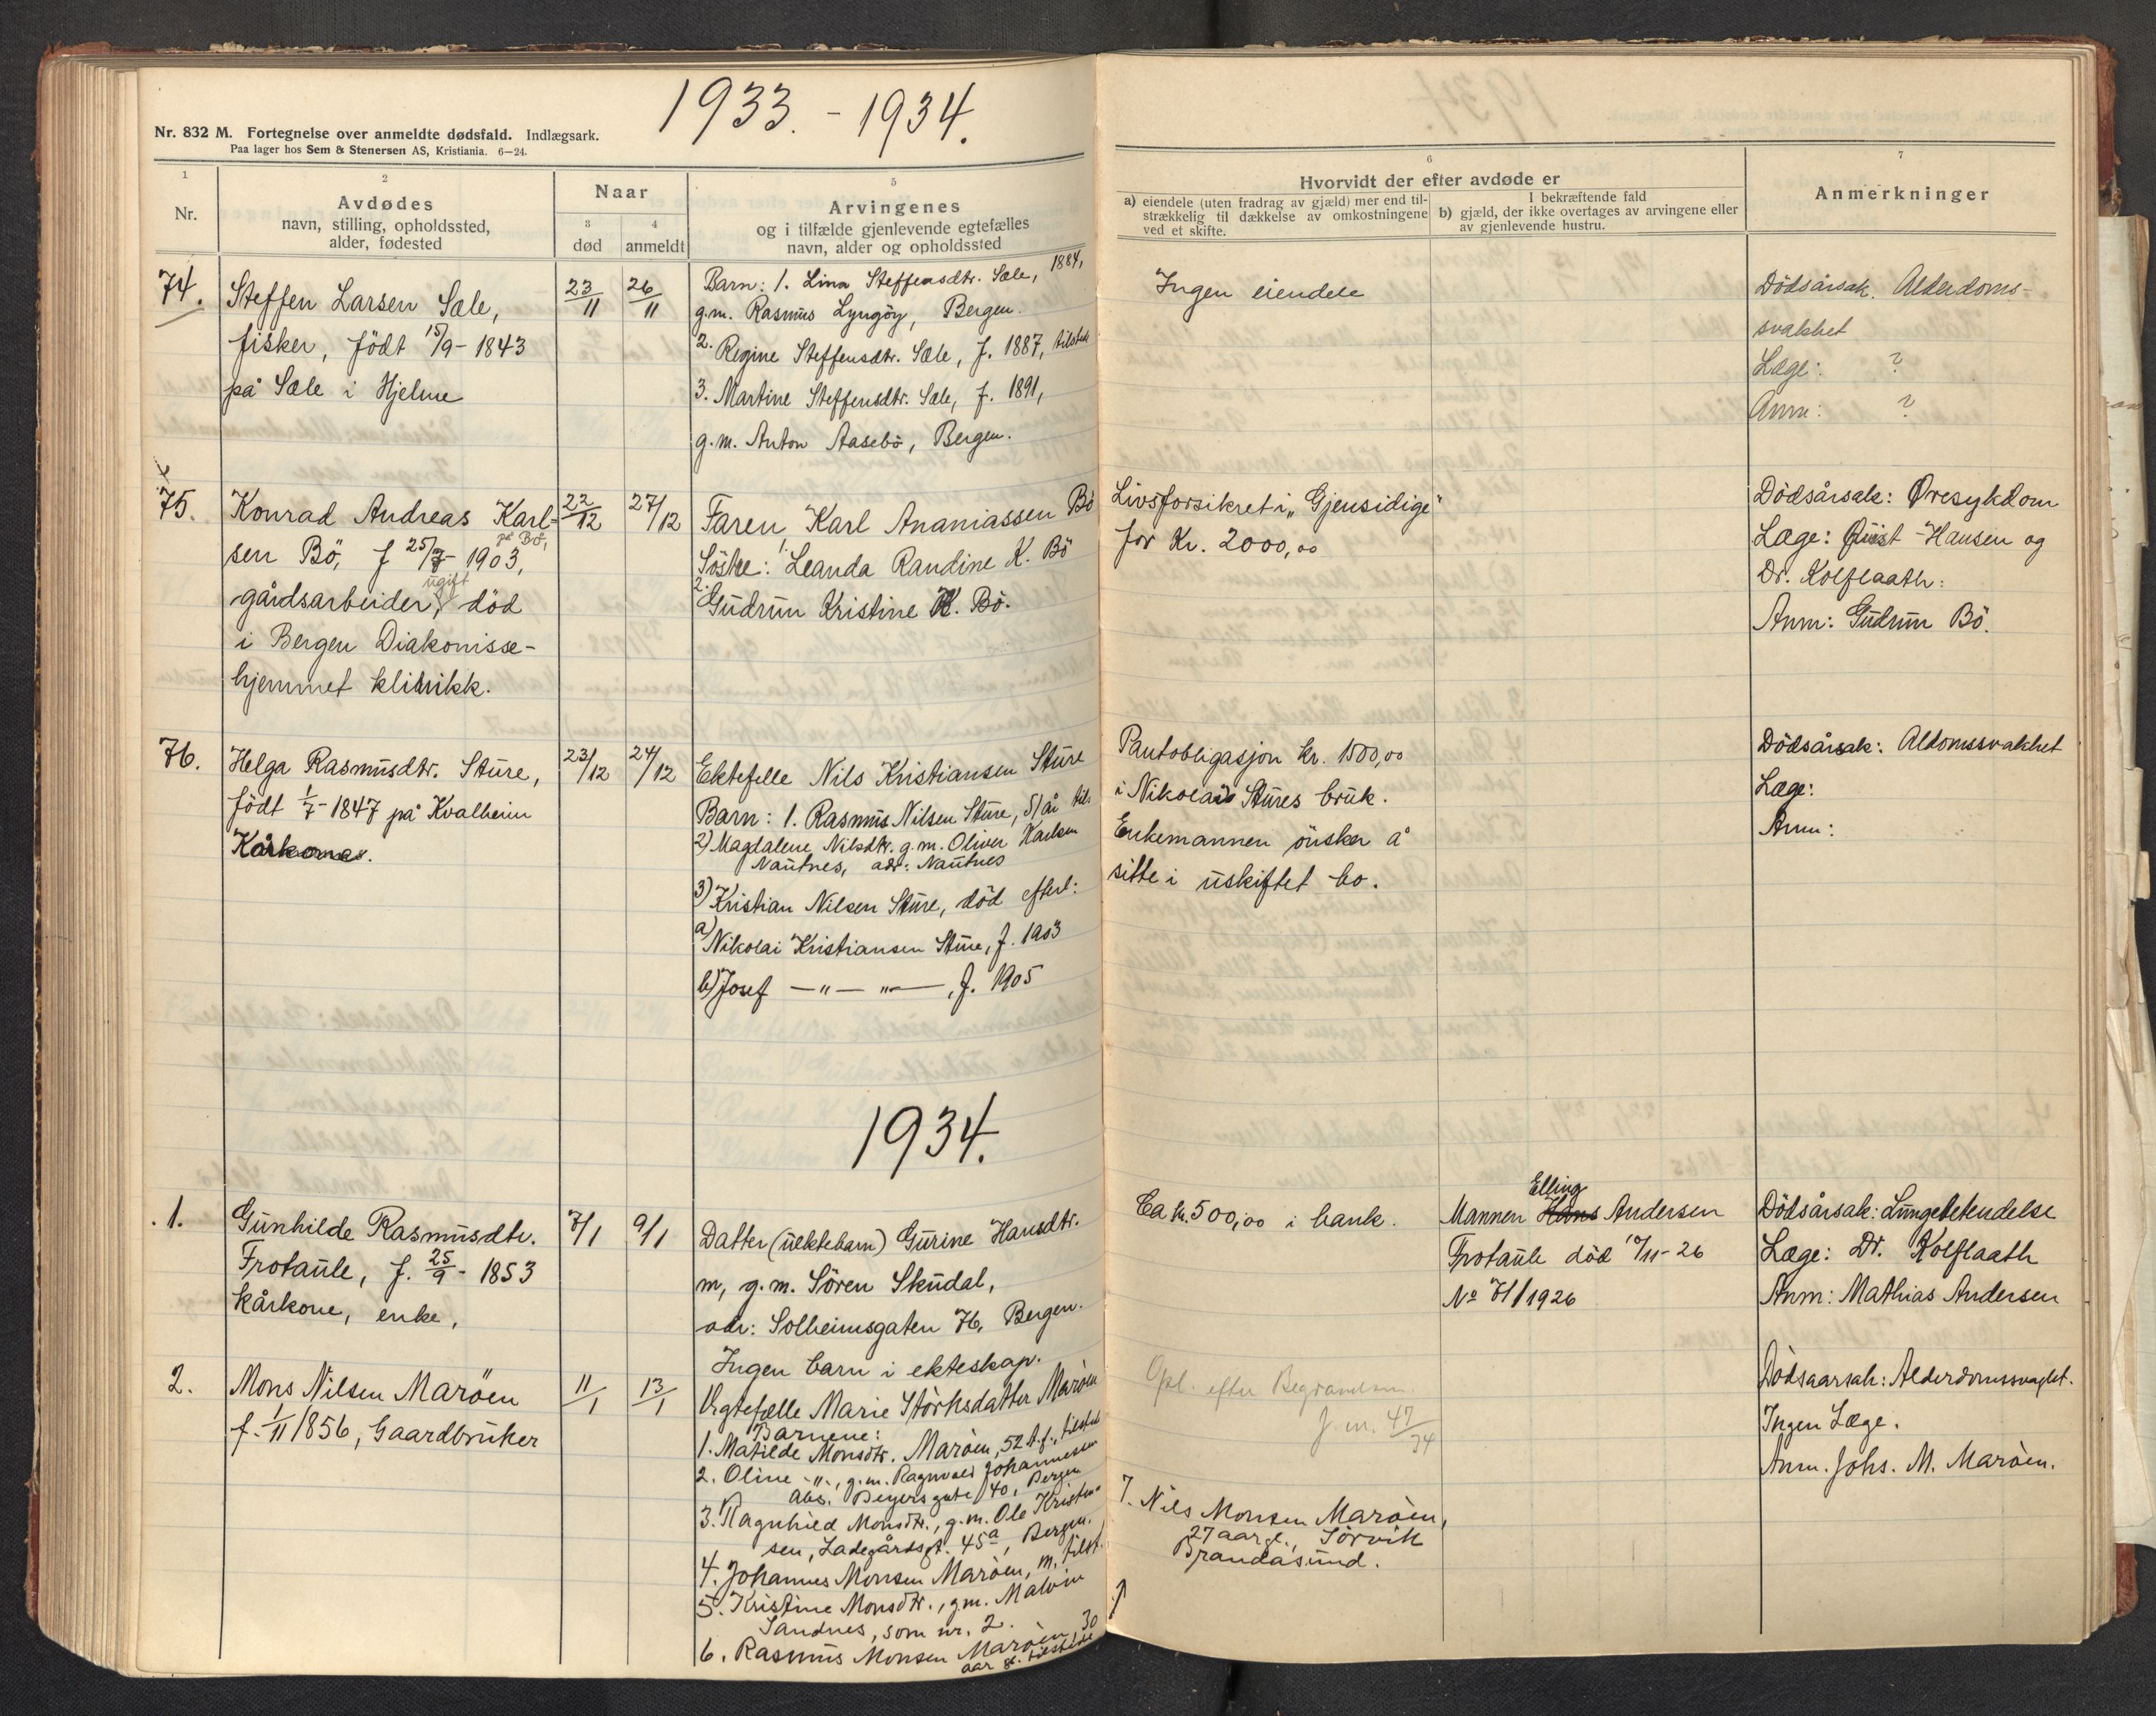 1933. - 1934.
Nr. 832 M. Fortegnelse over anmeldte dødsfald. Indlægsark.
Paa lager hos Sem & Stenersen AS, Kristiania. 6—24.
1
Nr.
2
Avdødes
navn, stilling, opholdssted,
alder, fødested
Naar
3
død
4
anmeldt
5
Arvingenes
og i tilfælde gjenlevende egtefælles
navn, alder og opholdssted
6
Hvorvidt der efter avdøde er
a) eiendele (uten fradrag av gjæld) mer end til-
strækkelig til dækkelse av omkostningene
ved et skifte.
I bekræftende fald
b) gjæld, der ikke overtages av arvingene eller
av gjenlevende hustru.
7
Anmerkninger
74.
Steffen Larsen Sæle,
fisker, født 15/9- 1843
på Sæle i Hjelme
23/11
26/11
Barn: 1. Lina Steffensdtr. Sæle, 1884,
g.m. Rasmus Lyngöy, Bergen.
2. Regine Steffensdtr. Sæle, f. 1887, tilstede
3. Martine Steffensdtr. Sæle, f. 1891,
g.m. Anton Aasebö, Bergen.
Ingen eiendele
Dödsårsak. Alderdoms-
svakhet
Læge: ?
Anm: ?
75.
Konrad Andreas Karl-
sen Bö, f 25/7- 1903, på Bö,
gårdsarbeider, ugift død
i Bergen Diakonisse-
hjemmet klinikk.
22/12
27/12
Faren Karl Ananiassen Bö
Söstre: 1. Leanda Randine K. Bö
2. Gudrun Kristine K. Bö.
Livsforsikret i „Gjensidige"
for Kr. 2000,00
Dödsårsak: Øresykdom
Læge: Quist-Hansen og
Dr. Kolflaath:
Anm: Gudrun Bö.
76.
Helga Rasmusdtr. Sture,
født 1/7- 1847 på Kvalheim
Kårkone.
23/12
24/12
Ektefelle Nils Kristiansen Sture
Barn: 1. Rasmus Nilsen Sture, 51 år til.
2) Magdalene Nilsdtr. g.m. Oliver Karlsen
Nautnes, adr: Nautnes
3) Kristian Nilsen Sture, død efterl:
a) Nikolai Kristiansen Sture, f. 1903
b) Josef —„— „—, f. 1905
Pantobligasjon kr. 1500,00
i Nikolais Stures bruk.
Enkemannen önsker å
sitte i uskiftet bo.
Dödsårsak: Aldomssvakhet
Læge:
Anm:
1934.
1.
Gunhilde Rasmusdtr.
Frotaule, f. 25/9- 1853
kårkone, enke,
7/1
9/1
Datter (uektebarn) Gurine Hansdtr.
m, g.m. Sören Skudal,
adr: Solheimsgaten 76, Bergen.
Ingen barn i ekteskap.
Ca kr. 500,00 i bank.
Elling
Mannen Hans Andersen
Frotaule død 10/11- 26
No 71/1926
Dödsårsak: Lungebetendelse
Læge: Dr. Kolflaath
Anm: Mathias Andersen
2.
Mons Nilsen Maröen
f. 1/11 1856, Gaardbruker
11/1
13/1
Ægtefælle Marie Störksdatter Maröen
Barnene:
1. Matilde Monsdtr. Maröen, 52 A.g., tilsted
2. Oline -"-, g.m. Ragnvald Johannesen
Abs. Beyers gate 40, Bergen
3. Ragnhild Monsdtr., g.m. Ole Kristen-
sen, Ladegårdsgt. 45a, Bergen.
4. Johannes Monsen Maröen, m. tilst.
5. Kristine Monsdtr., g.m. Malvin
Sandnes, som nr. 2.
6. Rasmus Monsen Maröen, 30
aar gl. tilstede
Opl. efter Begravelsen.
J. nr. 47/34
7. Nils Monsen Maröen,
27 aar gl., Sörvik
Brandasund.
Dödsaarsak: Alderdomssvaghet.
Ingen Læge.
Anm. Johs. M. Maröen.